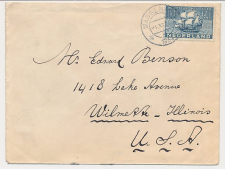 NEDERLAND
Mr. Edward Benson
1418 Lake Avenue
Wilmette - Illinois
U. S. A.